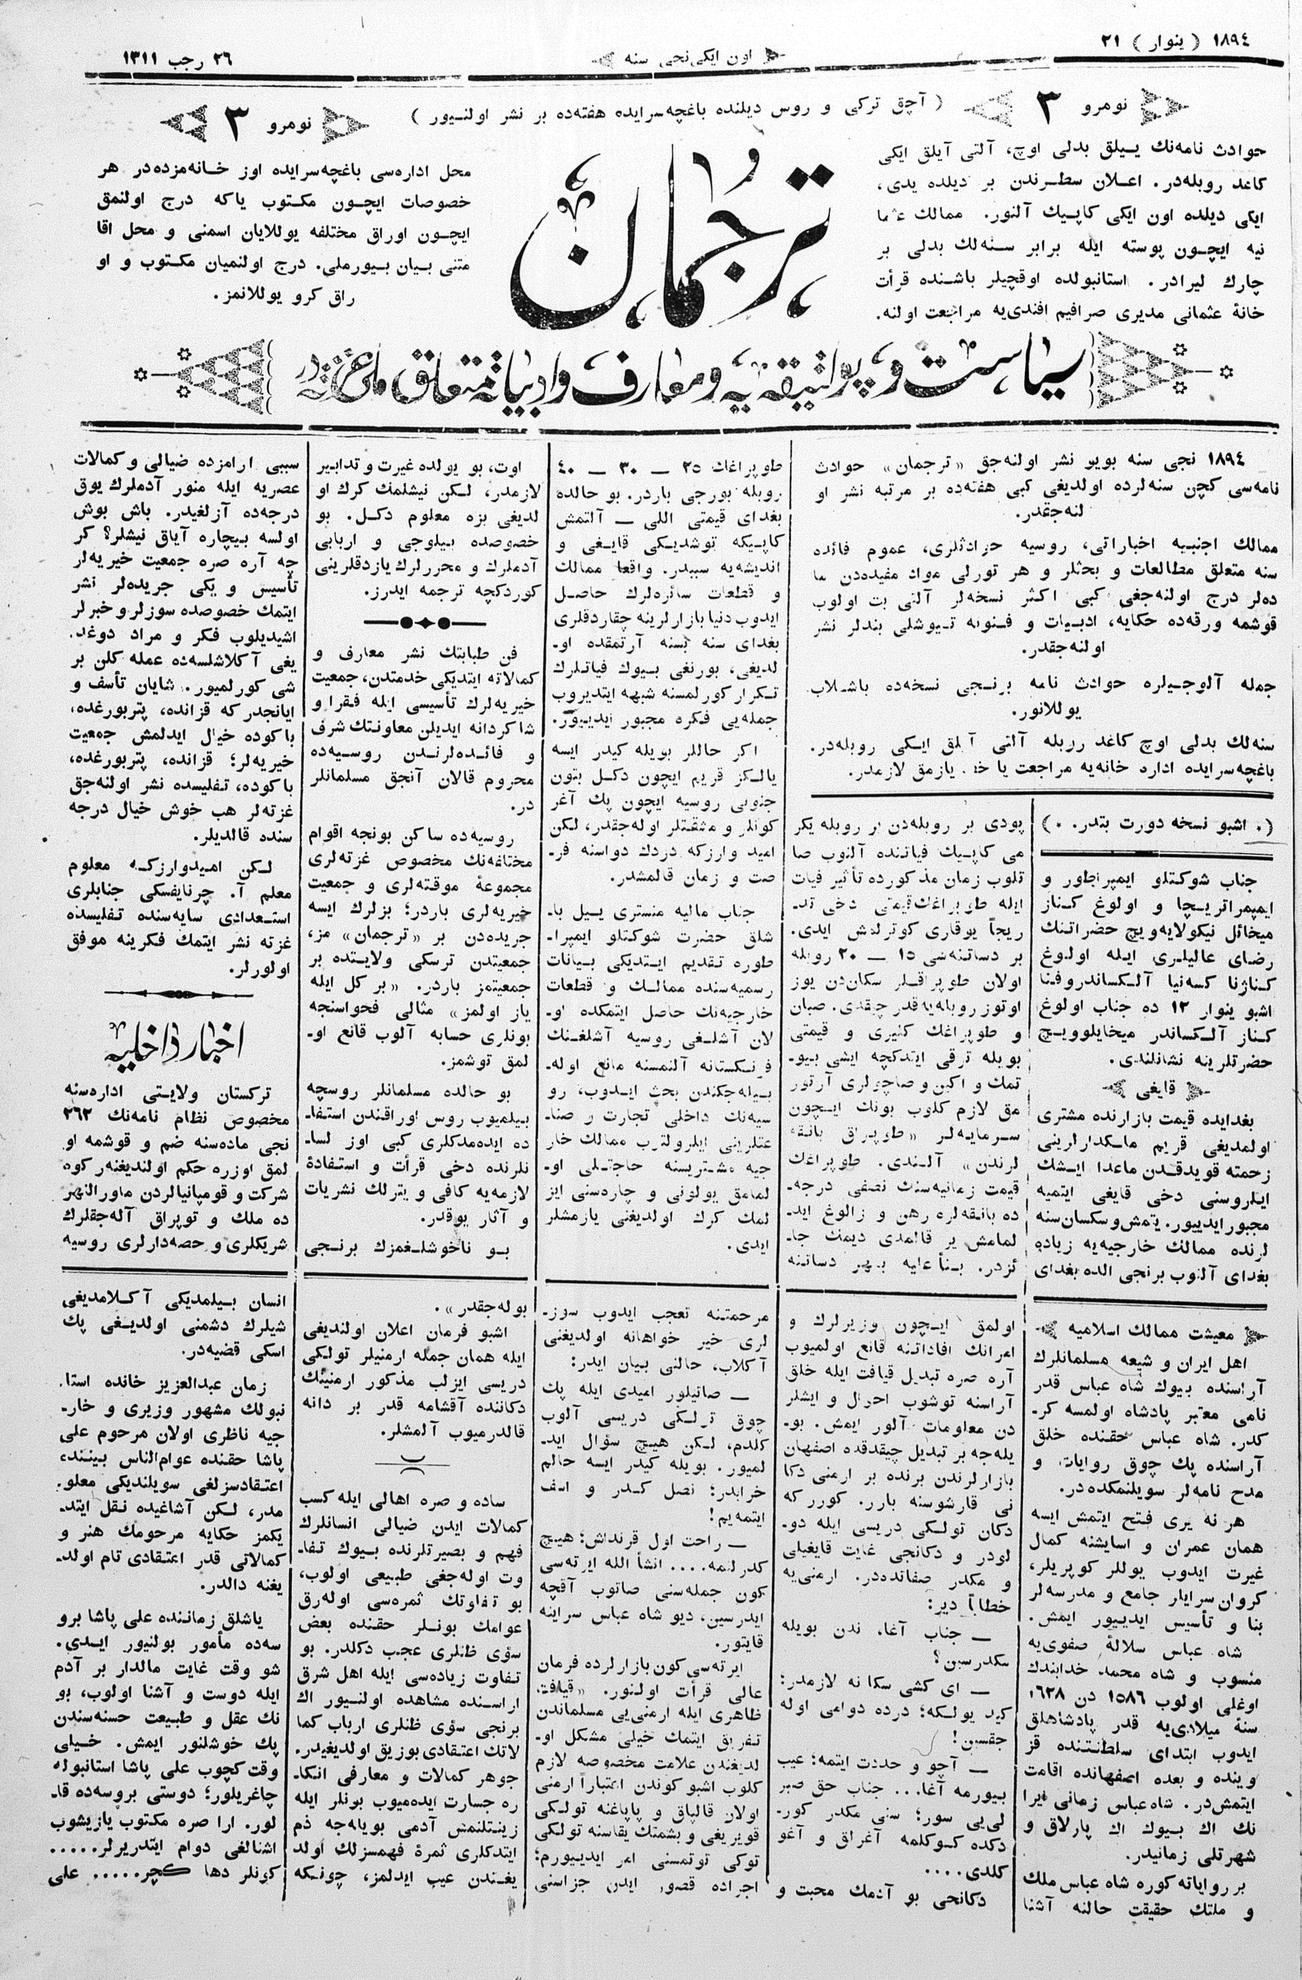 ١٨٩٤ ( ینوار ) ٢١
اون ایکی نجی سنه
٢٦ رجب ١٣١١
نومرو ٣
( آچق ترکی و روس دیلنده باغچه‌سرایده هفته‌ده بر نشر اولنیور )
نومرو ٣
حوادث نامه‌نك ییلق بدلی اوچ، آلتی آیلق ایکی
کاغد روبله‌در. اعلان سطرندن بر دیلده یدی،
ایکی دیلده اون ایکی کاپیك آلنور. ممالك عثما
نیه ایچون پوسته ایله برابر سنه‌لك بدلی بر
چارك لیرادر. استانبولده اوقچیلر باشنده قرأت
خانهٔ عثمانی مدیری صرافیم افندی‌یه مراجعت اولنه.
ترجمان
محل اداره‌سی باغچه‌سرایده اوز خانه‌مزده‌در هر
خصوصات ایچون مکتوب یاکه درج اولنمق
ایچون اوراق مختلفه یوللایان اسمنی و محل اقا
متنی بیان بیورملی. درج اولنمیان مکتوب و او
راق کرو یوللانمز.
سیاست و پولتیقه‌یه و معارف و ادبیاته متعلق ملی غزته‌در
١٨٩٤ نجی سنه بویو نشر اولنه‌جق «ترجمان» حوادث
نامه‌سی کچن سنه‌لرده اولدیغی کبی هفته‌ده بر مرتبه نشر او
لنه‌جقدر.
ممالك اجنبیه اخباراتی، روسیه حوادثلری، عموم فائده
سنه متعلق مطالعات و بحثلر و هر تورلی مواد مفیده‌دن ما
ده‌لر درج اولنه‌جغی کبی اکثر نسخه‌لر آلتی بت اولوب
قوشمه ورقه‌ده حکایه، ادبیات و فنونه تیوشلی بندلر نشر
اولنه‌جقدر.
جمله آلوجیلره حوادث نامه برنجی نسخه‌ده باشلاب
یوللانور.
سنه‌لك بدلی اوچ کاغد روبله آلتی آیلق ایکی روبله‌در.
باغچه‌سرایده اداره خانه‌یه مراجعت یا خط یازمق لازمدر.
(٠ اشبو نسخه دورت بتدر. ٠)
جناب شوکتلو ایمپراطور و
ایمپراتریچا و اولوغ کناز
میخائل نیکولایه‌ویچ حضراتنك
رضای عالیلری ایله اولوغ
کناژنا کسه‌نیا آلکساندروفنا
اشبو ینوار ١٢ ده جناب اولوغ
کناز آلکساندر میخایلوویچ
حضرتلرینه نشانلندی.
قایغی
بغدایده قیمت بازارنده مشتری
اولمدیغی قریم ملکدارلرینی
زحمته قویدقدن ماعدا ایشك
ایلروسنی دخی قایغی ایتمیه
مجبور ایدییور. یتمش و سکسان سنه
لرنده ممالك خارجیه‌یه زیاده
بغدای آلنوب برنجی الده بغدای
پودی بر روبله‌دن بر روبله یکر
می کاپیك فیاتنده آلنوب صا
تلوب زمان مذکورده تأثیر فیات
ایله طوپراغك قیمتی دخی تد-
ریجاً یوقاری کوترلمش ایدی.
بر دساتنه‌سی ١٥ — ٢٠ روبله
اولان طوپراقلر سکاندن یوز
اوتوز روبله‌یه قدر چیقدی. صبان
و طوپراغك کثیری و قیمتی
بویله ترقی ایتدکچه ایشی بیو-
تمك و اکین و صاچولری آرتور
مق لازم کلوب بونك ایچون
سرمایه‌لر «طوپراق بانقه
لرندن» آلندی. طوپراغك
قیمت زمانیه‌سنك نصفی درجه-
ده بانقه‌لره رهن و زالوغ اید-
لمامش یر قالمدی دیمك جا-
ئزدر. بناً علیه بهر دساتنه
طوپراغك ٢٥ — ٣٠ — ٤٠
روبله بورجی باردر. بو حالده
بغدای قیمتی اللی — آلتمش
کاپیکه توشدیکی قایغی و
اندیشه‌یه سببدر. واقعا ممالك
و قطعات سائره‌لرك حاصل
ایدوب دنیا بازارلرینه چقاردقلری
بغدای سنه بسنه آرتمقده او-
لدیغی، بورنغی بیوك فیاتلرك
تکرار کورلمسنه شبهه ایتدیروب
جمله‌یی فکره مجبور ایدییور.
اکر حاللر بویله کیدر ایسه
یالکز قریم ایچون دکل بتون
جنوبی روسیه ایچون پك آغر
کونلر و مثقتلر اوله‌جقدر، لکن
امید وارزکه دردك دواسنه فر-
صت و زمان قالمشدر.
جناب مالیه منستری ییل با-
شلق حضرت شوکتلو ایمپرا-
طوره تقدیم ایتدیکی بیانات
رسمیه‌سنده ممالك و قطعات
خارجیه‌نك حاصل ایتمکده او-
لان آشلغی روسیه آشلغنك
فرنکستانه آلنمسنه مانع اوله-
بیله‌جکندن بحث ایدوب، رو
سیه‌نك داخلی تجارت و صنا-
عتلرینی ایلرولتوب ممالك خار
جیه مشتریسنه حاجتلی او-
لمامق یولونی و چاره‌سنی ایز
لمك کرك اولدیغنی یازمشلر
ایدی.
اوت، بو یولده غیرت و تدابیر
لازمدر، لکن نیشلمك کرك او
لدیغی بزه معلوم دکل. بو
خصوصده بیلوجی و اربابی
آدملرك و محررلرك یازدقلرینی
کوردکچه ترجمه ایدرز.
فن طبابتك نشر معارف و
کمالاته ایتدیکی خدمتدن، جمعیت
خیریه‌لرك تأسیسی ایله فقرا و
شاکردانه ایدیلن معاونتك شرف
و فائده‌لرندن روسیه‌ده
محروم قالان آنجق مسلمانلر
در.
روسیه‌ده ساکن بونجه اقوام
مختلفه‌نك مخصوص غزته‌لری
مجموعهٔ موقته‌لری و جمعیت
خیریه‌لری باردر؛ بزلرك ایسه
جریده‌دن بر «ترجمان» مز،
جمعیتدن ترسکی ولایتده بر
جمعیتمز باردر. «بر کل ایله
یاز اولمز» مثالی فحواسنجه
بونلری حسابه آلوب قانع او-
لمق توشمز.
بو حالده مسلمانلر روسچه
بیلمیوب روس اوراقندن استفا-
ده ایده‌مدکلری کبی اوز لسا-
نلرنده دخی قرأت و استفادهٔ
لازمه‌یه کافی و یترلك نشریات
و آثار یوقدر.
بو ناخوشلغمزك برنجی
سببی ارامزده ضیالی و کمالات
عصریه ایله منور آدملرك یوق
درجه‌ده آزلغیدر. باش بوش
اولسه بیچاره آیاق نیشلر؟ کر
چه آره صره جمعیت خیریه‌لر
تأسیس و یکی جریده‌لر نشر
ایتمك خصوصده سوزلر و خبرلر
اشیدیلوب فکر و مراد دوغد-
یغی آکلاشلسه‌ده عمله کلن بر
شی کورلمیور. شایان تأسف و
ایانجدر که قزانده، پتربورغده،
باکوده خیال ایدلمش جمعیت
خیریه‌لر؛ قزانده، پتربورغده،
باکوده، تفلیسده نشر اولنه‌جق
غزته‌لر هب خوش خیال درجه
سنده قالدیلر.
لکن امیدوارزکه معلوم
معلم آ. چرنایفسکی جنابلری
استعدادی سایه‌سنده تفلیسده
غزته نشر ایتمك فکرینه موفق
اولورلر.
اخبار داخلیه
ترکستان ولایتی اداره‌سنه
مخصوص نظام نامه‌نك ٢٦٢
نجی ماده‌سنه ضم و قوشمه او
لمق اوزره حکم اولندیغنه‌ کوره
شرکت و قومپانیالردن ماورالنهر
ده ملك و توپراق آله‌جقلرك
شریکلری و حصه‌دارلری روسیه
معیشت ممالك اسلامیه
اهل ایران و شیعه مسلمانلرك
آراسنده بیوك شاه عباس قدر
نامی معتبر پادشاه اولمسه کر-
کدر. شاه عباس حقنده خلق
آراسنده پك چوق روایات و
مدح نامه‌لر سویلنمکده‌در.
هر نه یری فتح ایتمش ایسه
همان عمران و اسایشنه کمال
غیرت ایدوب یوللر کوپریلر،
کروان سرایلر جامع و مدرسه‌لر
بنا و تأسیس ایدییور ایمش.
شاه عباس سلالهٔ صفوی‌یه
منسوب و شاه محمد خدابندك
اوغلی اولوب ١٥٨٦ دن ١٦٢٨
سنهٔ میلادی‌یه قدر پادشاهلق
ایدوب ابتدای سلطنتنده قز
وینده و بعده اصفهانده اقامت
ایتمش‌در. شاه عباس زمانی ایرا
نك اك بیوك اك پارلاق و
شهرتلی زمانیدر.
بر روایاته کوره شاه عباس ملك
و ملتك حقیقت حالنه آشنا
اولمق ایچون وزیرلرك و
امرانك افاداتنه قانع اولمیوب
آره صره تبدیل قیافت ایله خلق
آراسنه توشوب احوال و ایشلر
دن معلومات آلور ایمش. بو-
یله‌جه بر تبدیل چیقدقده اصفهان
بازارلرندن برنده بر ارمنی دکا
نی قارشوسنه بارر. کوررکه
دکان تولکی دریسی ایله دو-
لودر و دکانجی غایت قایغیلی
و مکدر صفانده‌در. ارمنی‌یه
خطاباً دیر:
— جناب آغا، ندن بویله
مکدرسین؟
— ای کشی سکا نه لازمدر؛
کید یولکه؛ درده دوامی اوله
جقسین!
— آچو و حددت ایتمه؛ عیب
بیورمه آغا... جناب حق صبر
لی‌یی سور؛ سنی مکدر کور-
دکده کوکلمه آغراق و آغو
کلدی....
دکانجی بو آدمك محبت و
مرحمتنه تعجب ایدوب سوز-
لری خیر خواهانه اولدیغنی
آکلاب، حالنی بیان ایدر:
— صاتیلور امیدی ایله پك
چوق تولکی دریسی آلوب
کلدم، لکن هیچ سؤال اید-
لمیور. بویله کیدر ایسه حالم
خرابدر؛ نصل کدر و اسف
ایتمه‌یم!
— راحت اول قرنداش؛ هیچ
کدرلنمه.... انشأ الله ایرته‌سی
کون جمله‌سنی صاتوب آقچه
ایدرسین، دیو شاه عباس سراینه
قایتور.
ایرته‌سی کون بازارلرده فرمان
عالی قرأت اولنور. «قیافت
ظاهری ایله ارمنی‌یی مسلماندن
تفریق ایتمك خیلی مشکل او-
لدیغندن علامت مخصوصه لازم
کلوب اشبو کوندن اعتباراً ارمنی
اولان قالپاق و پاپاغنه تولکی
قویریغی و بشمتك یقاسنه تولکی
توکی توتمسنی امر ایدییورم؛
اجراده قصور ایدن جزاسنی
بوله‌جقدر».
اشبو فرمان اعلان اولندیغی
ایله همان جمله ارمنیلر تولکی
دریسی ایزلب مذکور ارمنینك
دکاننده آقشامه قدر بر دانه
قالدرمیوب آلمشلر.
ساده و صره اهالی ایله کسب
کمالات ایدن ضیالی انسانلرك
فهم و بصیرتلرنده بیوك تفا-
وت اوله‌جغی طبیعی اولوب،
بو تفاوتك ثمره‌سی اوله‌رق
عوامك بونلر حقنده بعض
سؤی ظنلری عجب دکلدر. بو
تفاوت زیاده‌سی ایله اهل شرق
اراسنده مشاهده اولنیور اك
برنجی سؤی ظنلری ارباب کما
لاتك اعتقادی بوزیق اولدیغیدر.
جوهر کمالات و معارفی انکا-
ره جسارت ایده‌میوب بونلر ایله
زینتلنمش آدمی بویله‌جه ذم
ایتدکلری ثمرهٔ فهمسزلك اولد
یغندن عیب ایدلمز، چونکه
انسان بیلمدیکی آکلامدیغی
شیلرك دشمنی اولدیغی پك
اسکی قضیه‌در.
زمان عبدالعزیز خانده استا-
نبولك مشهور وزیری و خار-
جیه ناظری اولان مرحوم علی
پاشا حقنده عوام‌الناس بیننده،
اعتقادسزلغی سویلندیکی معلو-
مدر، لکن آشاغیده نقل ایتد-
یکمز حکایه مرحومك هنر و
کمالاتی قدر اعتقادی تام اولد-
یغنه دالدر.
یاشلق زماننده علی پاشا برو
سه‌ده مأمور بولنیور ایدی.
شو وقت غایت مالدار بر آدم
ایله دوست و آشنا اولوب، بو
نك عقل و طبیعت حسنه‌سندن
پك خوشلنور ایمش. خیلی
وقت کچوب علی پاشا استانبوله
چاغریلور؛ دوستی بروسه‌ده قا-
لور. ارا صره مکتوب یازیشوب
اشنالغی دوام ایتدریرلر.....
کونلر دها کچر..... علی